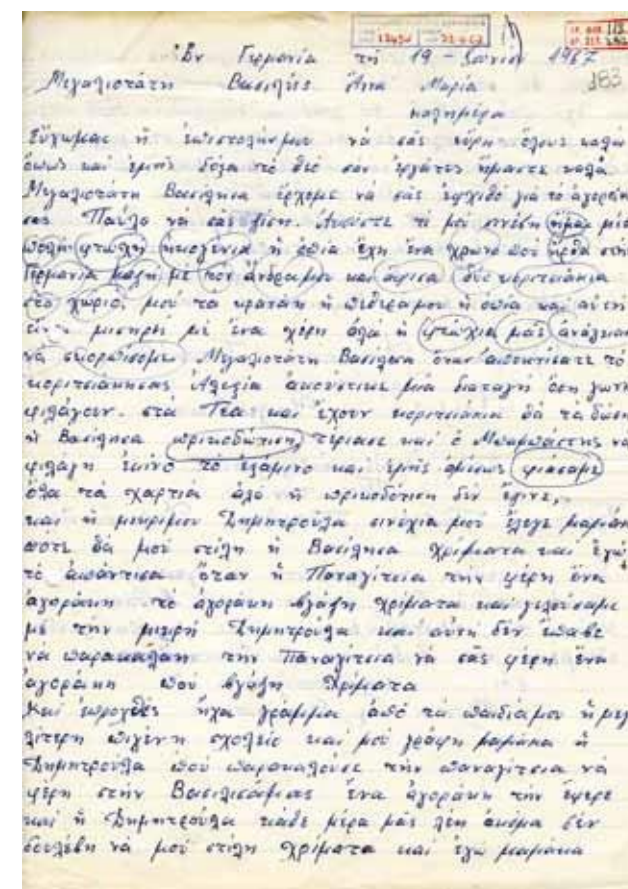 Ἐν Γερμανία τή 19 - Ἰουνίου 1967
183
Μεγαλιοτάτη Βασιλήςς Ἄνα Μαρία
καλημέρα
Εὔχωμαι ἡ ἐπιστολήν μου νά σᾶς εὔρη ὅλους καλά
ὅπως καί ἐμῆς δόξα τό θεό σάν ἐργάτες ἤμαστε καλά
Μεγαλιοτάτη Βασίλησα ἔρχομε νά σᾶς εὐχιθό γιά τό ἀγοράκη
σας Παῦλο νά σᾶς ζίση. Ἀκοῦστε τί μοί συνέβη ἤμαι μία
πολή φτωχή ἠκογένια ἡ ὁπία ἔχη ἕνα χρόνο πού ἦρθα στήν
Γερμανία μαζή μέ τον ἄνδραμου καί ἄφισα δύο κοριτσιάκια
στό χωριό μου τα κρατάη ἡ πεθεραμου ἡ ὁπία καί αὐτή
εἶνε μισηρη μέ ἕνα χέρη ἀλα ἡ φτώχια μᾶς ἀνάγκασε
νά σκορπίσομε. Μεγαλιοτάτη Βασίλησα ὅταν ἀποκτίσατε τό
κοριτσιάκησας Ἀλεξία ἀκούστικε μία διαταγή ὅση γωνη
φιλάγουν. στά Τεα καί ἔχουν κοριτσιάκια θά τα δώση
ἡ Βασίλησα πρικοδώτιση, τέριασε καί ὁ Μπαμπάςτης νά
φιλάγη ἐκίνο τό ἑξάμινο καί ἐμῆς ἀμέσως φιάσαμε
ὅλα τά χαρτιά ἀλά ἡ πρικοδότιση δέν ἔγινε,
και ἡ μικρίμου Δημητρούλα συνέχια μου ἔλεγε μαμάκα
ποτε θά μοῦ στίλη ἡ Βασίλησα χρίματα και ἐγώ
τό ἀπάντισα ὅταν ἡ Παναγίτσα τήν φέρη ἕνα
ἀγοράκη τό ἀγοράκη βγάζη χρίματα καί γελούσαμε
μέ τήν μικρή Δημητρούλα καί αὐτή δέν ἔπαβε
νά παρακαλάη τήν Παναγίτσα νά σᾶς φέρη ἕνα
ἀγοράκη πού βγάζη χρίματα
Καί ἐπροχθές ἦχα γράμμα ἀπό τά παιδιάμου ἡ μεγα
λίτερη πιγένη σχολεῖο καί μοῦ γράφη μαμάκα ἡ
Δημητρούλα πού παρακαλοῦσε τήν παναγίτσα νά
φέρη στήν Βασίλισάμας ἕνα ἀγοράκη τήν ἔφερε
καί ἡ Δημητρούλα κάθε μέρα μᾶς λέη ἀκόμα δέν
δουλέβη νά μοῦ στίλη χρίματα καί ἐγώ μαμάκα